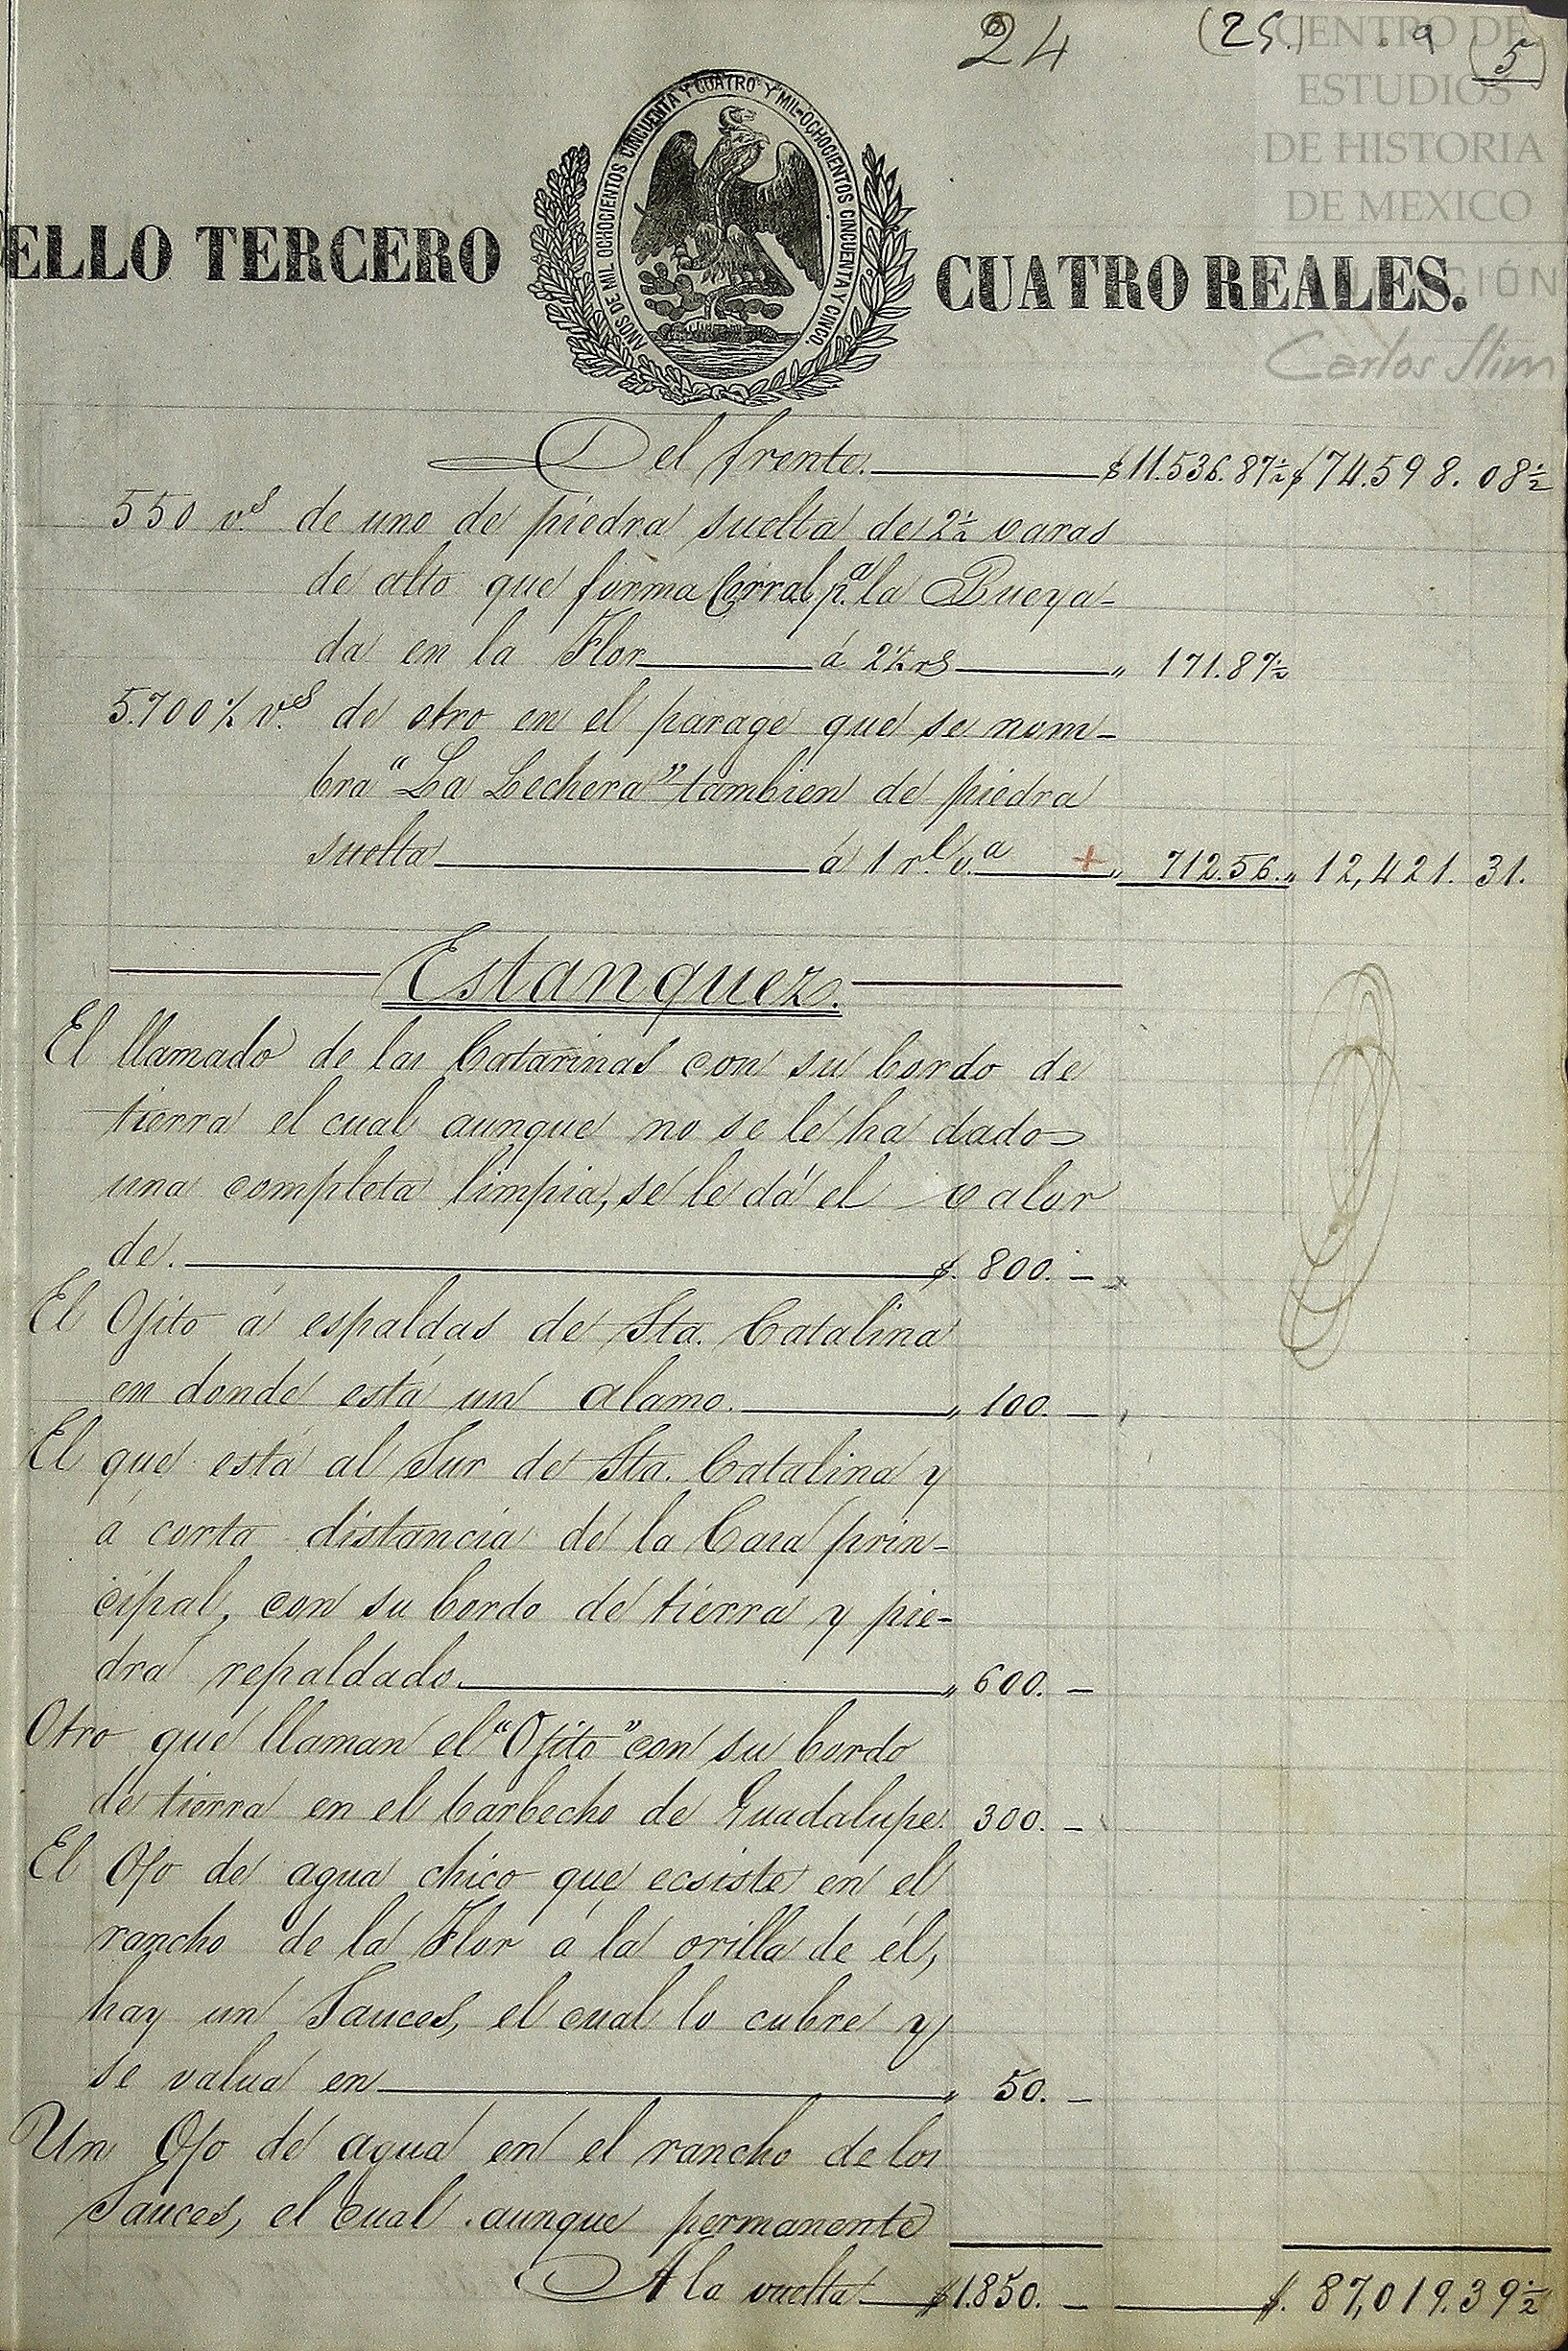 24 (25.) 9 (5)
CENTRO DE
ESTUDIOS
DE HISTORIA
DE MEXICO
CIÓN
Carlos Slim
AÑOS DE MIL OCHOCIENTOS CINCUENTA Y CUATRO Y MIL-OCHOCIENTOS CINCUENTA Y CINCO.
ELLO TERCERO CUATRO REALES.
Del frente. $11.536.87½ $74.598.08½
550 v.s de uno de piedra suelta de 2½ varas
de alto que forma Corral p.a la Bueya-
da en la Flor á 2½ rs „ 171.87½
5.700½ v.s de otro en el parage que se nom-
bra "La Lechera" tambien de piedra
suelta á 1 r.l v.a + „ 712.56. „ 12,421.31.
Estanquez.
El llamado de las Catarinas con su bordo de
tierra el cual aunque no se le ha dado
una completa limpia, se le dá el valor
de. $. 800. —
El Ojito á espaldas de Sta. Catalina
en donde está un alamo. „ 100. —
El que está al Sur de Sta. Catalina y
á corta distancia de la Casa prin-
cipal, con su bordo de tierra y pie-
dra repaldado. „ 600. —
Otro que llaman el "Ojito" con su bordo
de tierra en el barbecho de Guadalupe. 300. —
El Ojo de agua chico que ecsiste en el
rancho de la Flor á la orilla de él,
hay un Sauces, el cual lo cubre y
se valua en „ 50. —
Un Ojo de agua en el rancho de los
Sauces, el cual aunque permanente
A la vuelta $1.850. — $. 87,019.39½